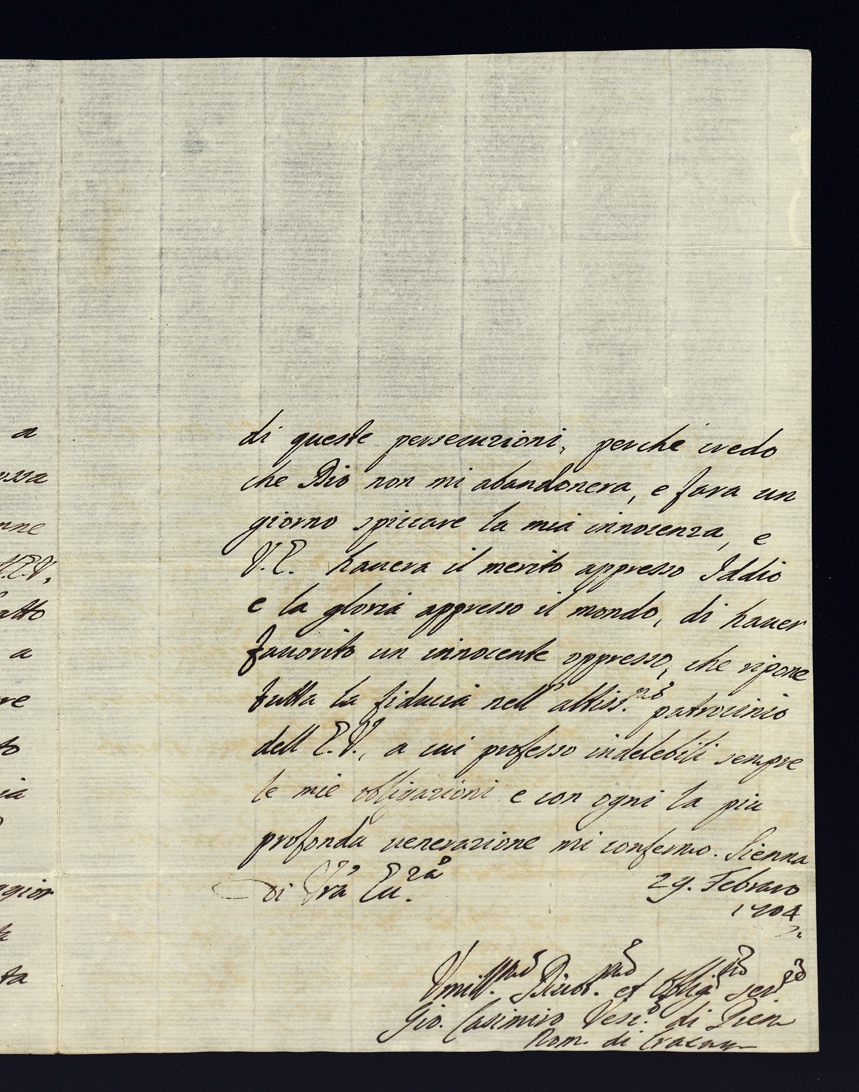 a
ossa
nne
V.E.V.
atto
a
re
to
ia
ggior
ta
di queste persecuzioni, perche credo
che Dio non mi abandonera, e fara un
giorno spiccare la mia innocenza, e
V.E. hauera il merito appresso Iddio
e la gloria appresso il mondo, di hauer
fauorito un innocente oppresso, che ripone
tutta la fiducia nell altiss.mo patrocinio
dell E.V., a cui professo indelebili sempre
le mie obligazioni e con ogni la piu
profonda uenerazione mi confermo. Sienna
di Vra Ecc.za 29. Febraro
1704
Vmill.mo Diuot.mo et Oblig.mo ser.re
Gio. Casimiro Vesc.o di
Nom. di